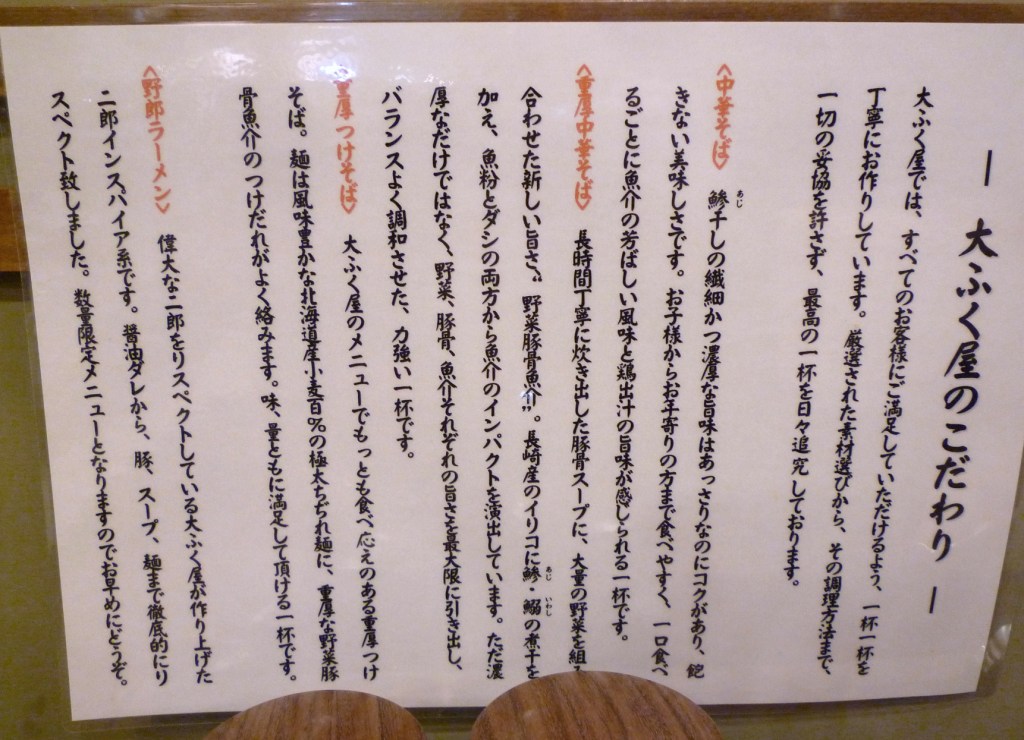 ― 大ふく屋のこだわり ―
大ふく屋では、すべてのお客様にご満足していただけるよう、一杯一杯を
丁寧にお作りしています。厳選された素材選びから、その調理方法まで、
一切の妥協を許さず、最高の一杯を日々追究しております。
<中華そば> 鯵干しの繊細かつ濃厚な旨味はあっさりなのにコクがあり、飽
あじ
きない美味しさです。お子様からお年寄りの方まで食べやすく、一口食べ
るごとに魚介の芳ばしい風味と鶏出汁の旨味が感じられる一杯です。
<重厚中華そば> 長時間丁寧に炊き出した豚骨スープに、大量の野菜を組み
合わせた新しい旨さ〝野菜豚骨魚介〟。長崎産のイリコに鯵・鰯の煮干を
あじ いわし
加え、魚粉とダシの両方から魚介のインパクトを演出しています。ただ濃
厚なだけではなく、野菜、豚骨、魚介それぞれの旨さを最大限に引き出し、
バランスよく調和させた、力強い一杯です。
<重厚つけそば> 大ふく屋のメニューでもっとも食べ応えのある重厚つけ
そば。麺は風味豊かな北海道産小麦百%の極太ちぢれ麺に、重厚な野菜豚
骨魚介のつけだれがよく絡みます。味、量ともに満足して頂ける一杯です。
<野郎ラーメン> 偉大な二郎をリスペクトしている大ふく屋が作り上げた
二郎インスパイア系です。醤油ダレから、豚、スープ、麺まで徹底的にリ
スペクト致しました。数量限定メニューとなりますのでお早めにどうぞ。